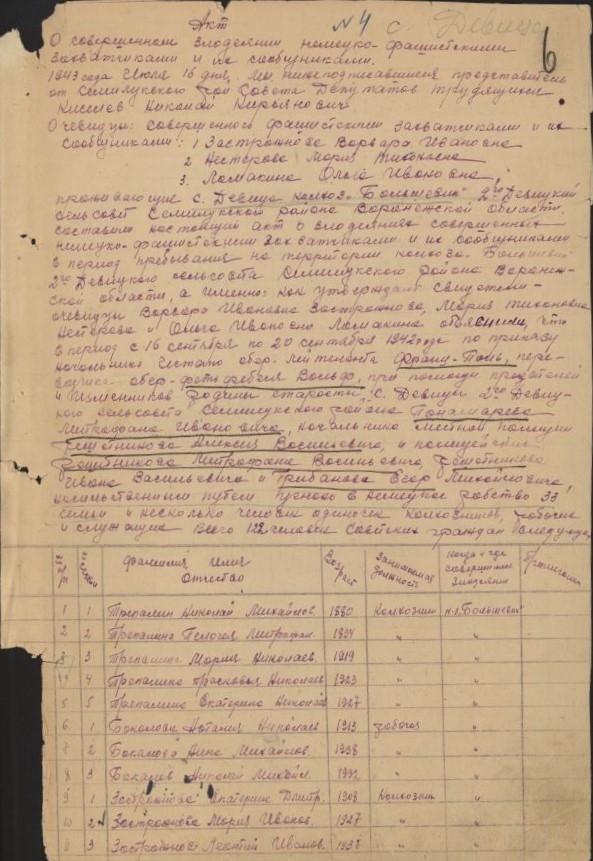 Акт
№ 4 с. Девица
6
О совершенном злодеянии немецко-фашистскими
захватчиками и их сообщниками.
1943 года Июля 16 дня, мы нижеподписавшиеся представитель
от Семилукского Рай Совета Депутатов трудящихся
Киселев Николай Кирьянович
Очевидцы: совершенного фашистскими захватчиками и их
сообщниками: 1 Застрожнова Варвара Ивановна
2 Нестерова Мария Тихоновна
3. Ломакина Ольга Ивановна,
проживающие с. Девица колхоз "Большевик" 2го Девицкий
сельсовет Семилукского района Воронежской области,
составили настоящий акт о злодеяниях совершенных
немецко-фашистскими захватчиками и их сообщниками
в период пребывания на территории колхоза "Большевик"
2го Девицкого сельсовета Семилукского района Воронеж-
ской области, а именно: как утверждают свидетели-
очевидцы Варвара Ивановна Застрожнова, Мария Тихоновна
Нестерова и Ольга Ивановна Ломакина объяснили, что
в период с 16 сентября по 20 сентября 1942 года по приказу
начальника обер-лейтенанта пере-
водчика обер-фельдфебеля Вольф, при помощи предателей
и изменников Родины старосты с. Девицы 2го Девиц-
кого сельсовета Семилукского района Понамарева
Митрофана Ивановича, начальника местной полиции
Решетникова Алексея Васильевича, и полицейских
Решетникова Митрофана Васильевича, Решетникова
Ивана Васильевича и Грибанова Егор Михайловича,
насильственным путем угнано в немецкое рабство 33
семьи и несколько человек одиночек колхозников, рабочие
и служащие всего 122 человек Советских граждан следующие
№ п/п № семьи фамилия имя отчество Возраст Занимаемая должность когда и где совершено злодеяние Примечание
1 1 Трепалин Николай Михайлов. 1880 Колхозник к-з "Большевик"
2 2 Трепалина Пелагея Митрофан. 1894 " "
3 3 Трепалина Мария Николаев. 1919 " "
4 4 Трепалина Прасковья Николаев 1923 " "
5 5 Трепалина Екатерина Николай 1927 " "
6 1 Бокалова Наталия Николаев 1913 рабочая "
7 2 Бокалова Нина Михайлов. 1938 " "
8 3 Бокалов Николай Михайл. " "
9 1 Застрожнова Екатерина Дмитр. 1908 Колхозник "
10 2 Застрожнова Мария Иванов. 1927 " "
11 3 Застрожнов Иванов. 1938 " "